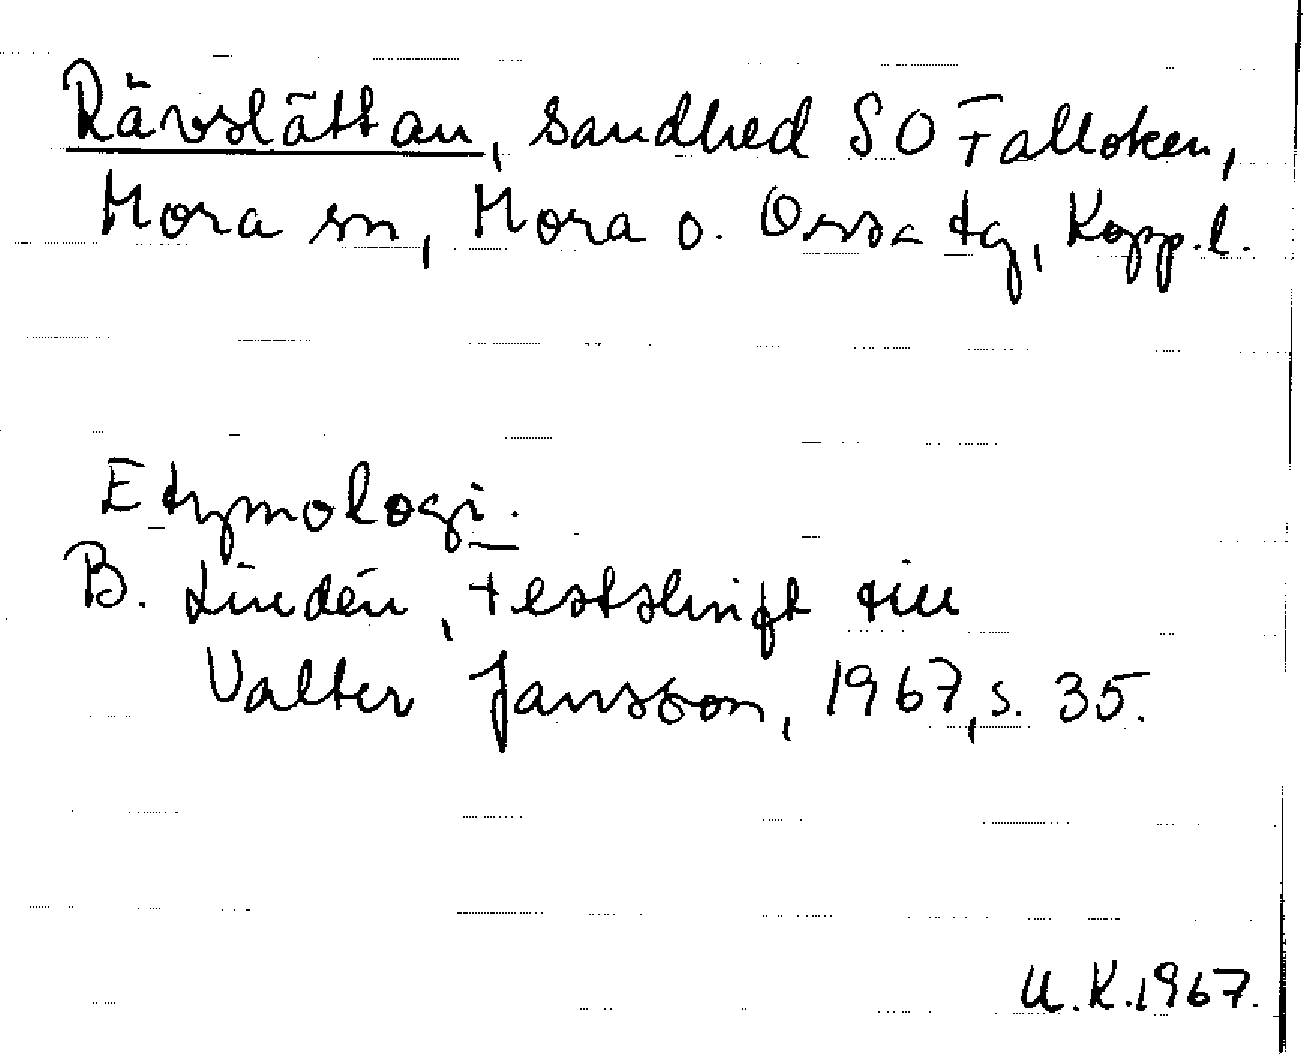 Rävslättan, sandhed SO Falloken,
Mora sn, Mora o. Orsa tg, Kopp.l.
Etymologi.
B. Lindén, Festskrift till
Valter Jansson, 1967, s. 35.
U.K.1967.